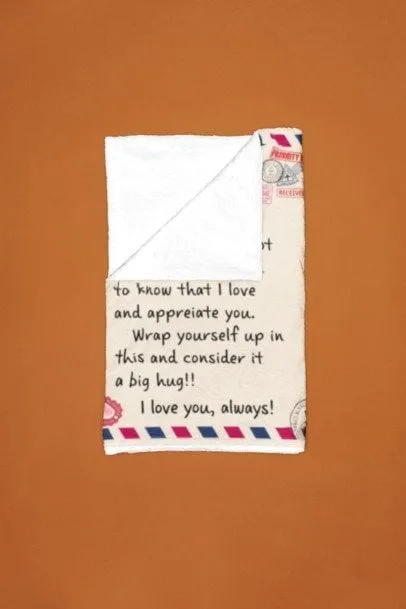 PRIORITY
RECEIVED
to know that I love
and appreiate you.
Wrap yourself up in
this and consider it
a big hug!!
I love you, always!